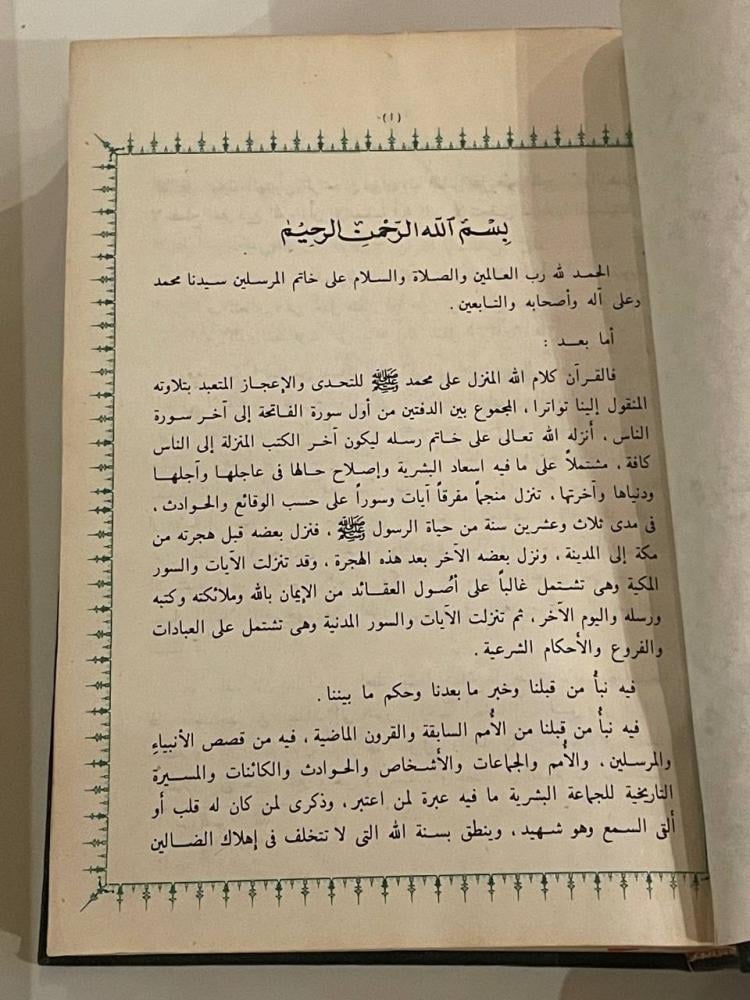 -(١)-
بِسْمِ ٱللَّهِ الرَّحْمٰنِ الرَّحِيْمِ
الحمد لله رب العالمين والصلاة والسلام على خاتم المرسلين سيدنا محمد
وعلى آله وأصحابه والتابعين .
أما بعد :
فالقرآن كلام الله المنزل على محمد ﷺ للتحدى والإعجاز المتعبد بتلاوته
المنقول إلينا تواترا ، المجموع بين الدفتين من أول سورة الفاتحة إلى آخر سورة
الناس ، أنزله الله تعالى على خاتم رسله ليكون آخر الكتب المنزلة إلى الناس
كافة ، مشتملاً على ما فيه اسعاد البشرية وإصلاح حالها فى عاجلها وآجلها
ودنياها وآخرتها ، تنزل منجماً مفرقاً آيات وسوراً على حسب الوقائع والحوادث ،
فى مدى ثلاث وعشرين سنة من حياة الرسول ﷺ ، فنزل بعضه قبل هجرته من
مكة إلى المدينة ، ونزل بعضه الآخر بعد هذه الهجرة ، وقد تنزلت الآيات والسور
المكية وهى تشتمل غالباً على أصُول العقائد من الإيمان بالله وملائكته وكتبه
ورسله واليوم الآخر ، ثم تنزلت الآيات والسور المدنية وهى تشتمل على العبادات
والفروع والأحكام الشرعية .
فيه نبأُ من قبلنا وخبر ما بعدنا وحكم ما بيننا .
فيه نبأُ من قبلنا من الأُمم السابقة والقرون الماضية ، فيه من قصص الأنبياءِ
والمرسلين ، والأُمم والجماعات والأشخاص والحوادث والكائنات والمسيرة
التاريخية للجماعة البشرية ما فيه عبرة لمن اعتبر ، وذكرى لمن كان له قلب أو
ألقى السمع وهو شهيد ، وينطق بسنة الله التى لا تتخلف فى إهلاك الضالين